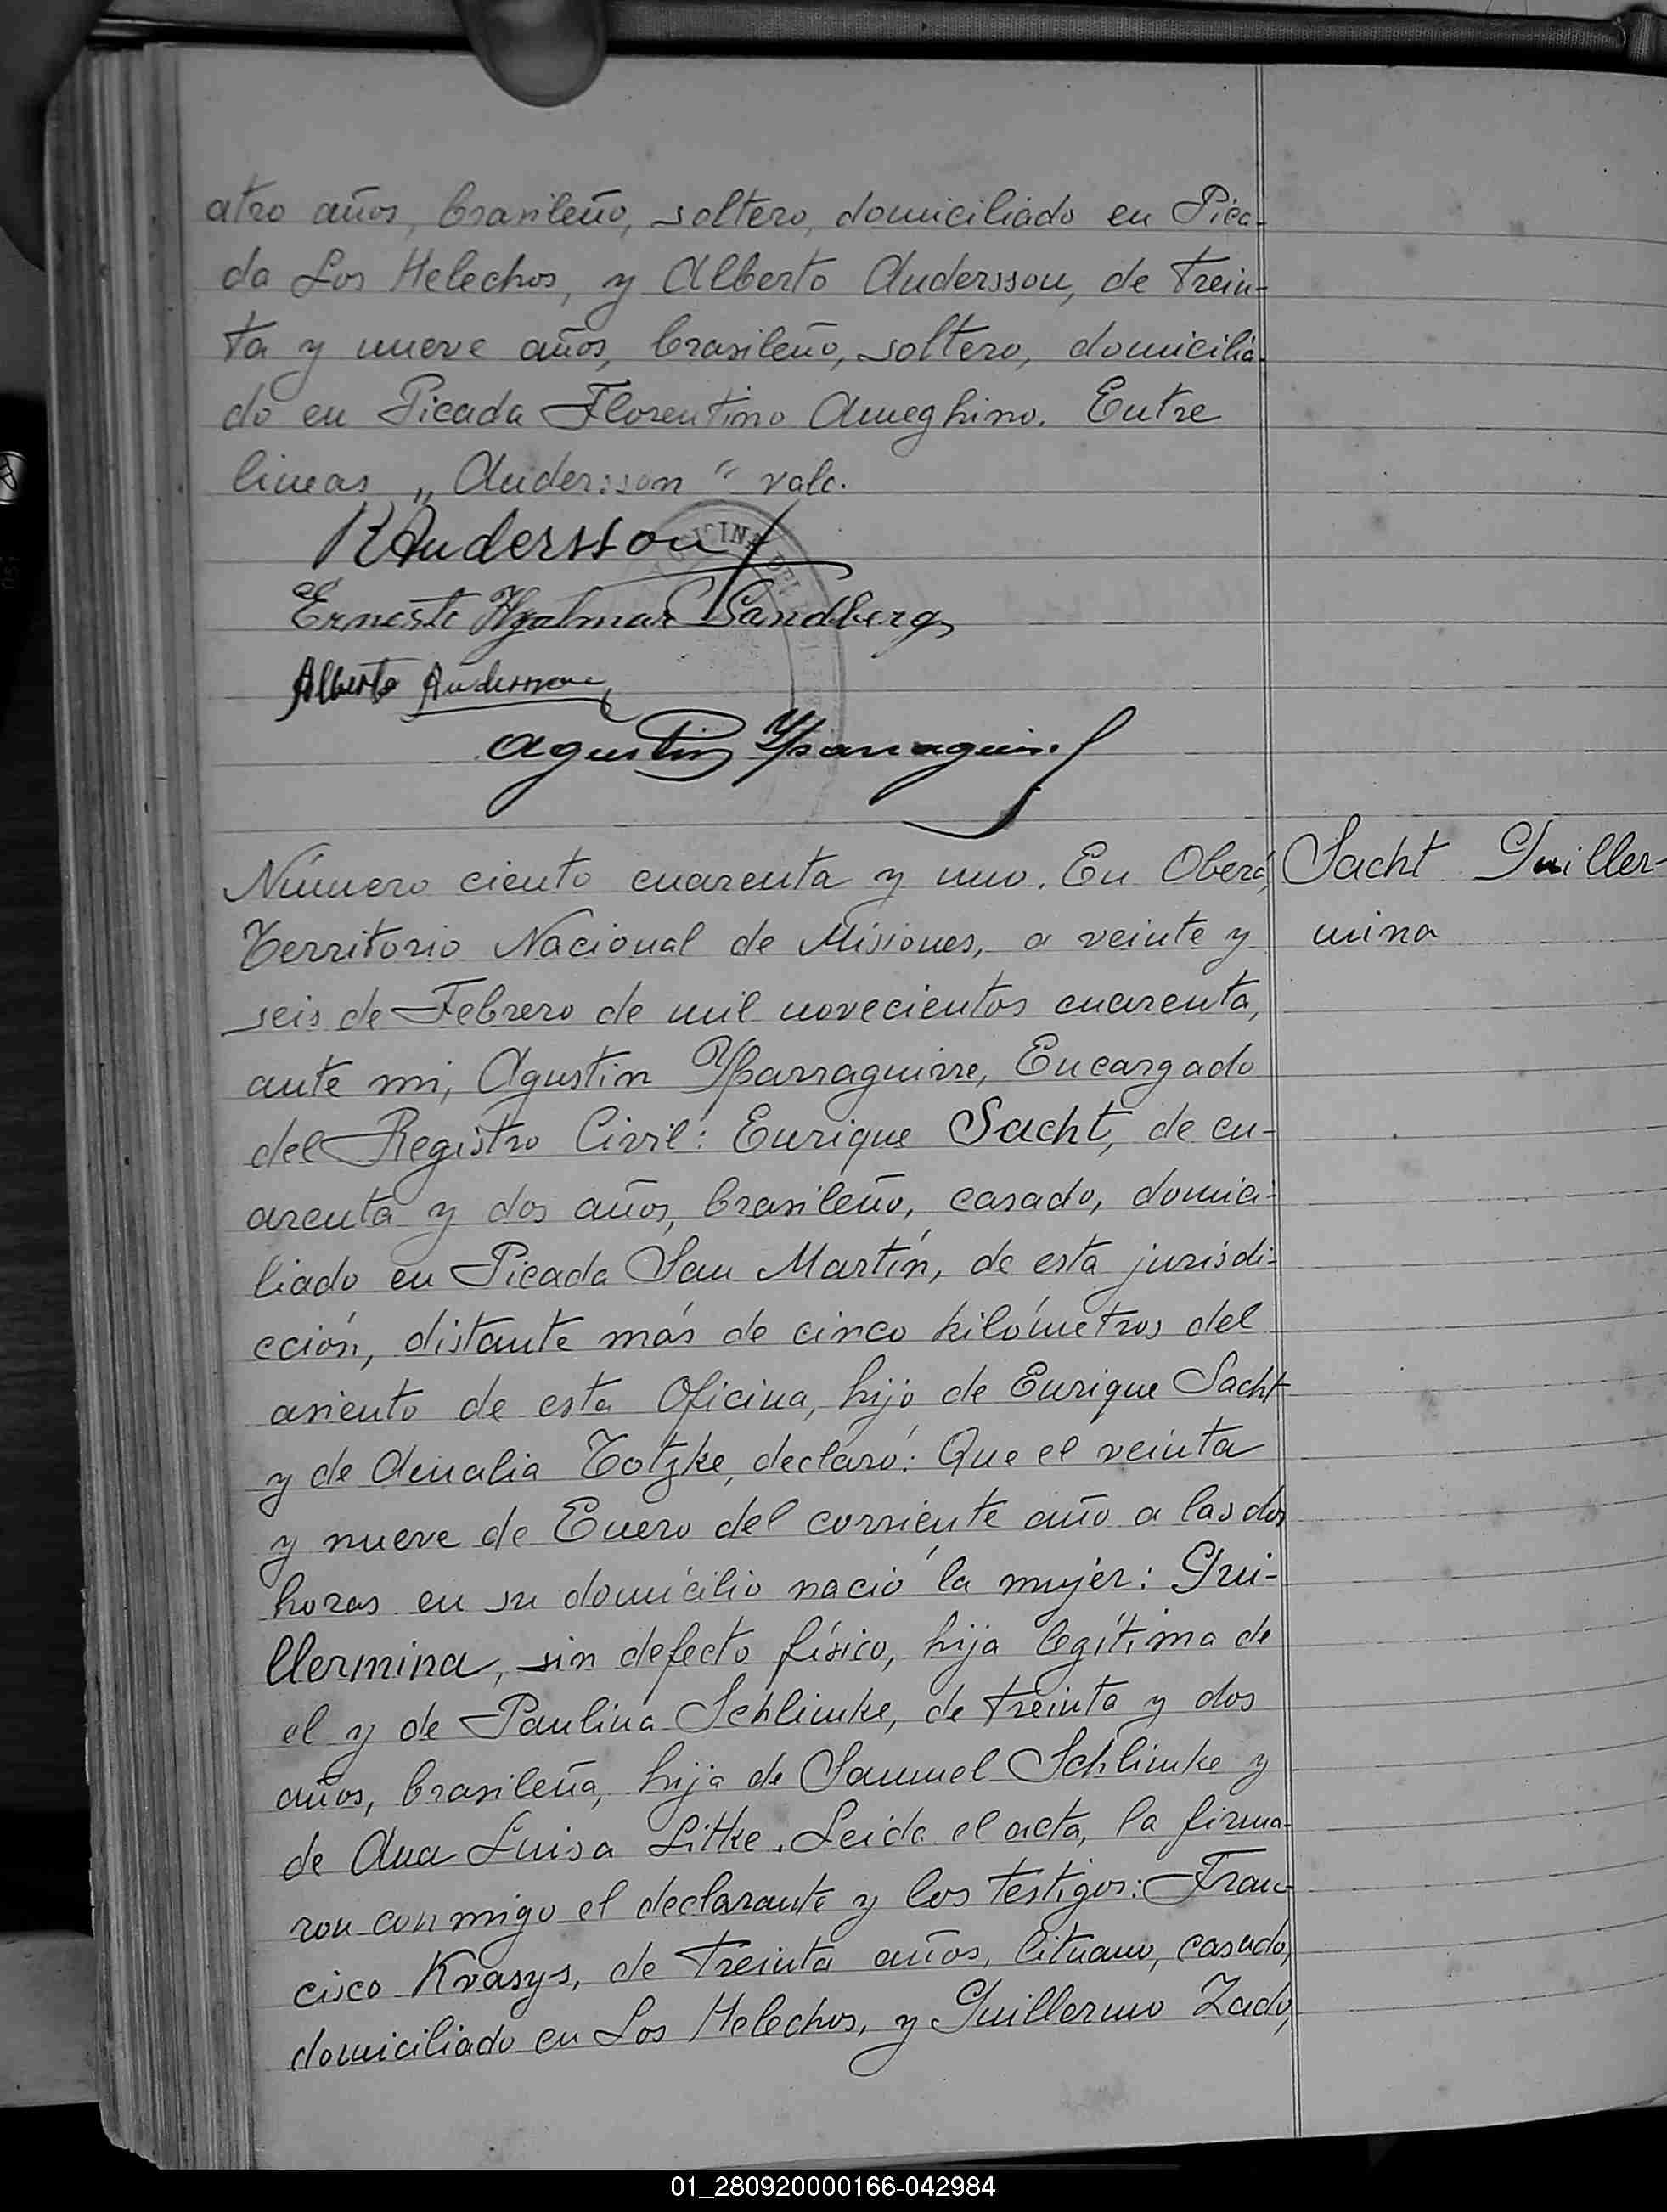 atro años, brasileño, soltero, domiciliado en Pica-
da Los Helechos, y Alberto Andersson, de trein-
ta y nueve años, brasileño, soltero, domicilia-
do en Picada Florentino Ameghino. Entre
lineas „Andersson" vale.
R Andersson
Ernesto Hjalmar Sandberg
Alberto Andersson
Agustin Yparraguirre
Número ciento cuarenta y uno. En Oberá, Sacht Guiller-
Territorio Nacional de Misiones, a veinte y mina
seis de Febrero de mil novecientos cuarenta,
ante mi, Agustin Yparraguirre, Encargado
del Registro Civil: Enrique Sacht, de cu-
arenta y dos años, brasileño, casado, domici-
liado en Picada San Martín, de esta jurisdi-
cción, distante más de cinco kilómetros del
asiento de esta Oficina, hijo de Enrique Sacht
y de Amalia Totzke, declaró: Que el veinta
y nueve de Enero del corriente año a las dos
horas en su domicilio nació la mujer: Gui-
llermina, sin defecto físico, hija legítima de
el y de Paulina Schlimke, de treinta y dos
años, brasileña, hija de Samuel Schlimke y
de Ana Luisa Litke. Leida el acta, la firma-
ron conmigo el declarante y los testigos: Fran-
cisco Kvasys, de treinta años, lituano, casado,
domiciliado en Los Helechos, y Guillermo Zado,
01_280920000166-042984